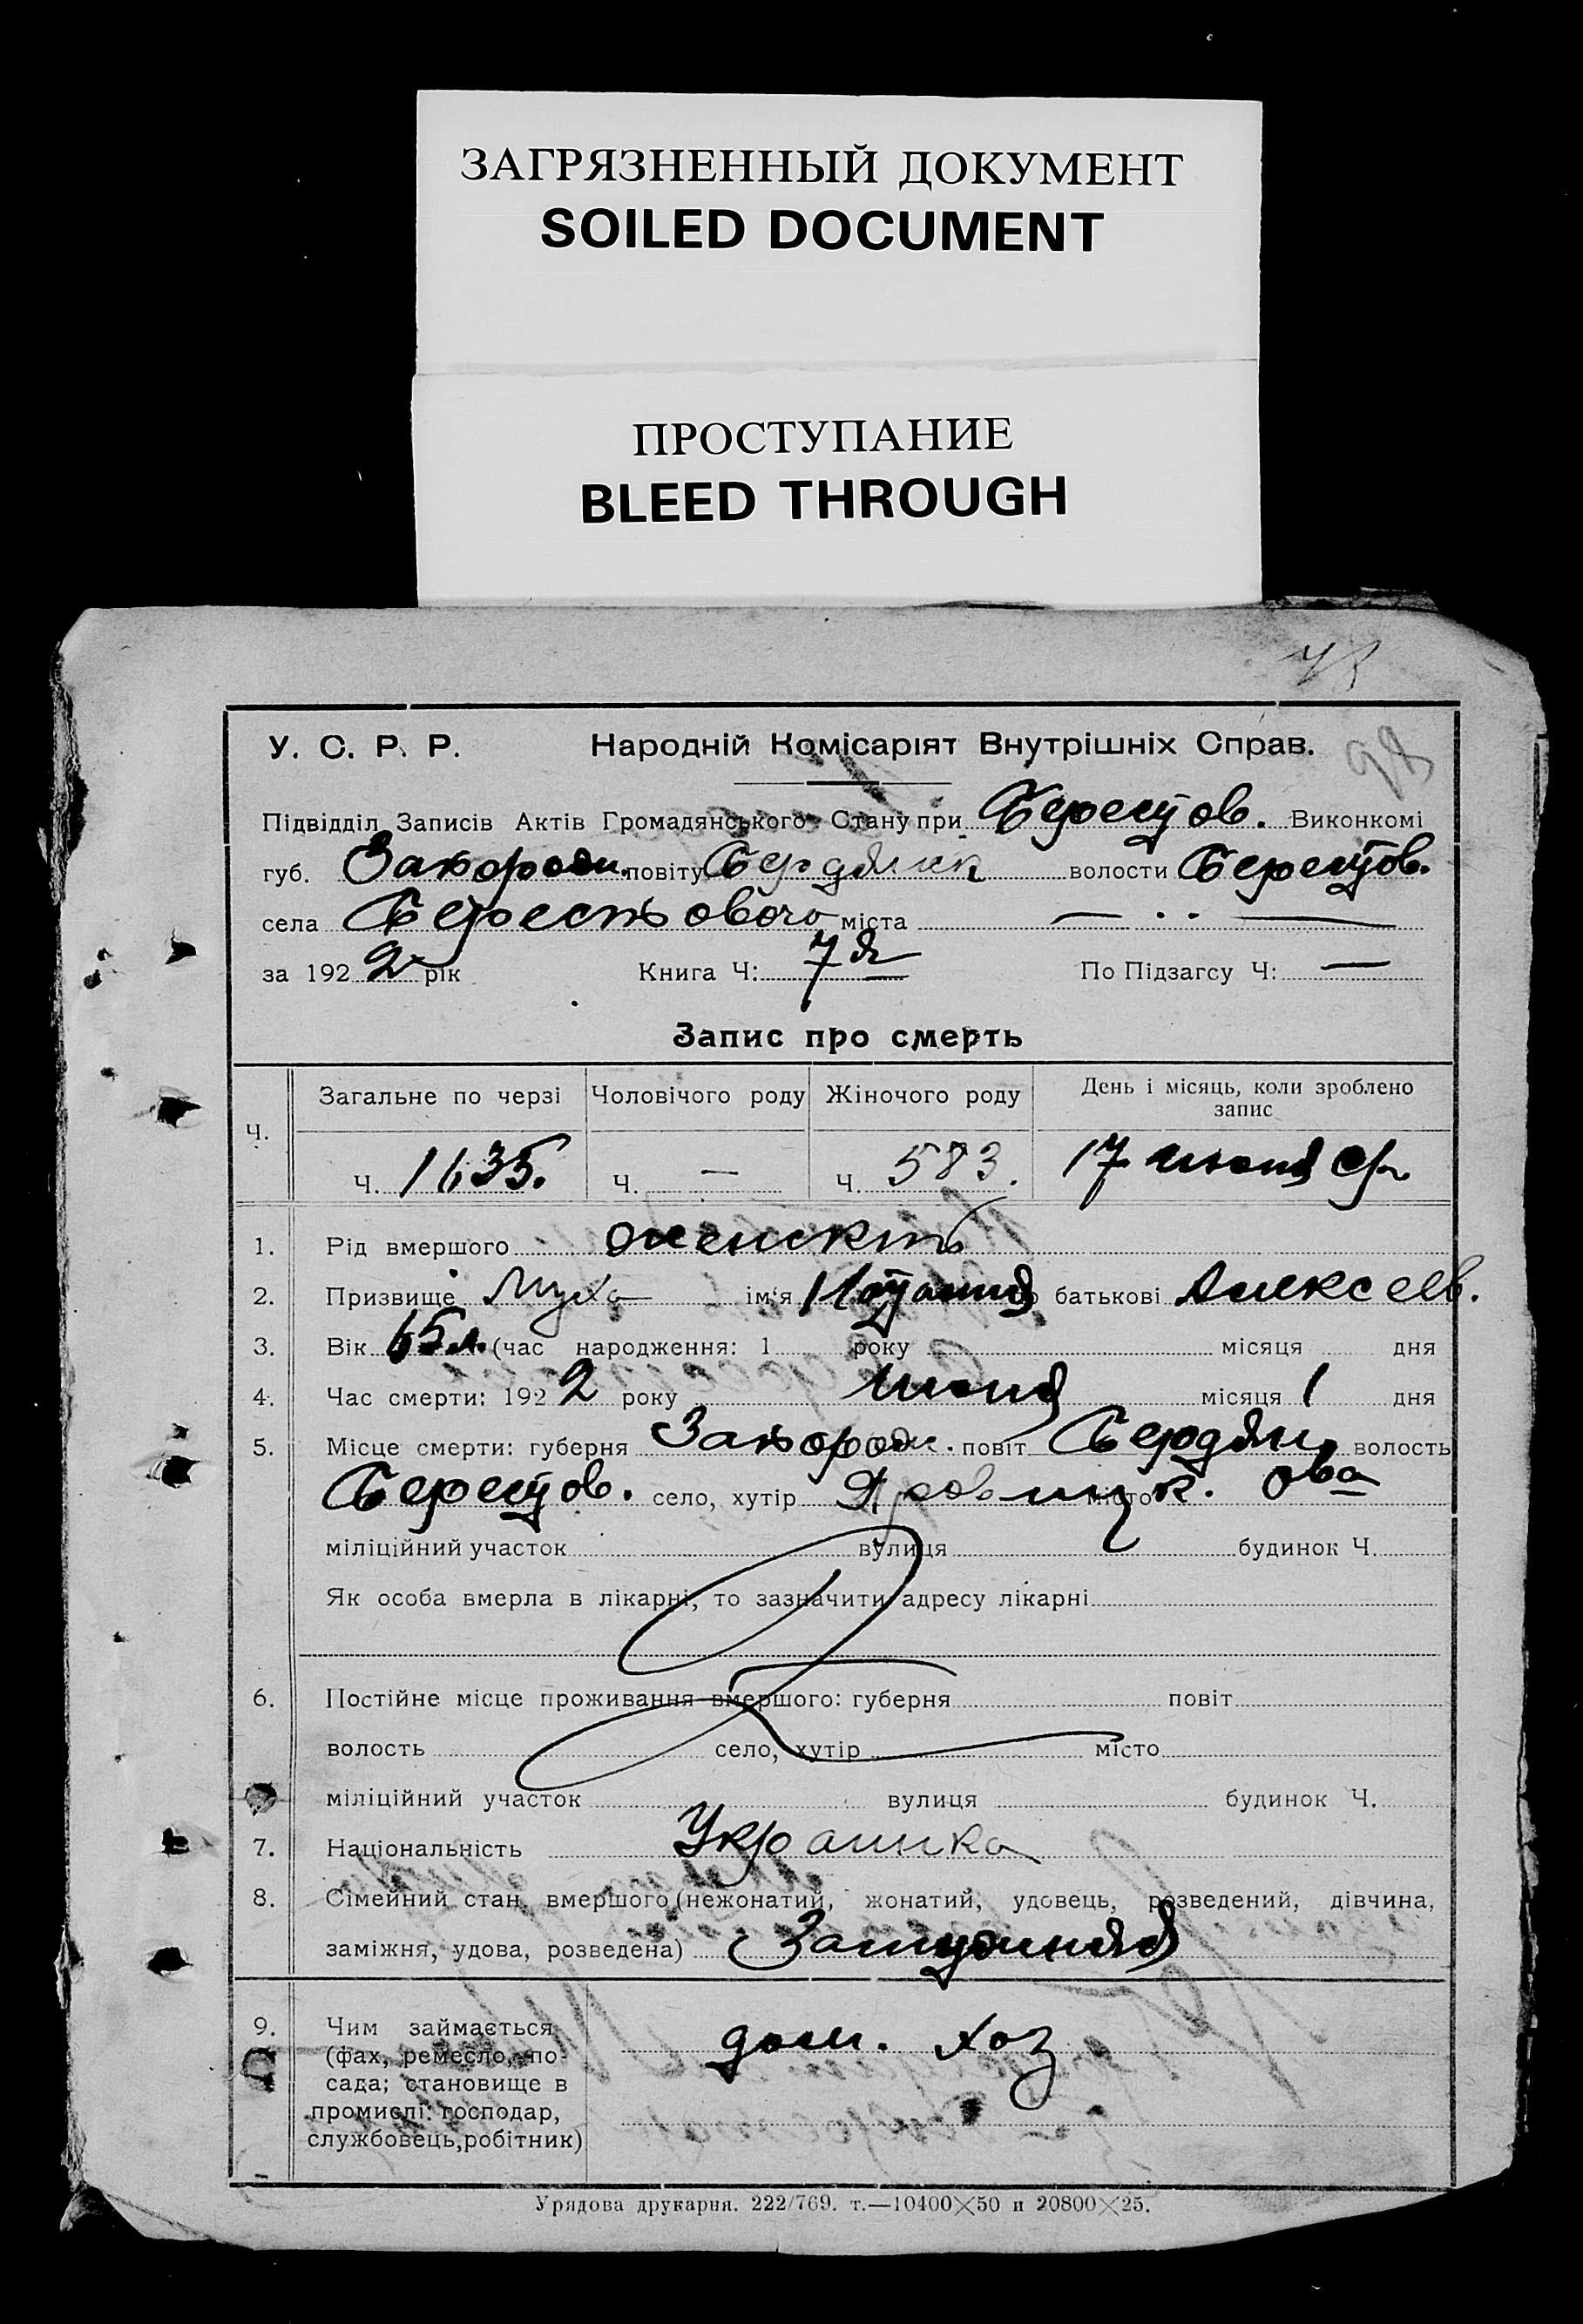 ЗАГРЯЗНЕННЫЙ ДОКУМЕНТ
SOILED DOCUMENT
ПРОСТУПАНИЕ
BLEED THROUGH
У. С. Р. Р. Народній Комісаріят Внутрішніх Справ.
Підвідділ Записів Актів Громадянського Стану при Берестов. Виконкомі
губ. повіту Бердянск волости Берестов.
села Берестового міста —
за 1922 рік Книга Ч: По Підзагсу Ч: —
Запис про смерть
Ч. Загальне по черзі Чоловічого роду Жіночого роду День і місяць, коли зроблено запис
Ч. 1635. Ч. — Ч. 583. 17 июня
1. Рід вмершого женскій
2. Призвище Муха ім'я по батькові Алексеев.
3. Вік 65 л. (час народження: 1 року місяця дня
4. Час смерти: 1922 року июня місяця 1 дня
5. Місце смерти: губерня повіт Бердян. волость
Берестов. село, хутір місто
міліційний участок вулиця будинок Ч.
Як особа вмерла в лікарні, то зазначити адресу лікарні
6. Постійне місце проживання вмершого: губерня повіт
волость село, хутір місто
міліційний участок вулиця будинок Ч.
7. Національність Украинка
8. Сімейний стан вмершого (нежонатий, жонатий, удовець, розведений, дівчина,
заміжня, удова, розведена) Замужняя
9. Чим займається дом. хоз
(фах, ремесло, по-
сада; становище в
промислі: господар,
службовець, робітник)
Урядова друкарня. 222/769. т.—10400×50 и 20800×25.